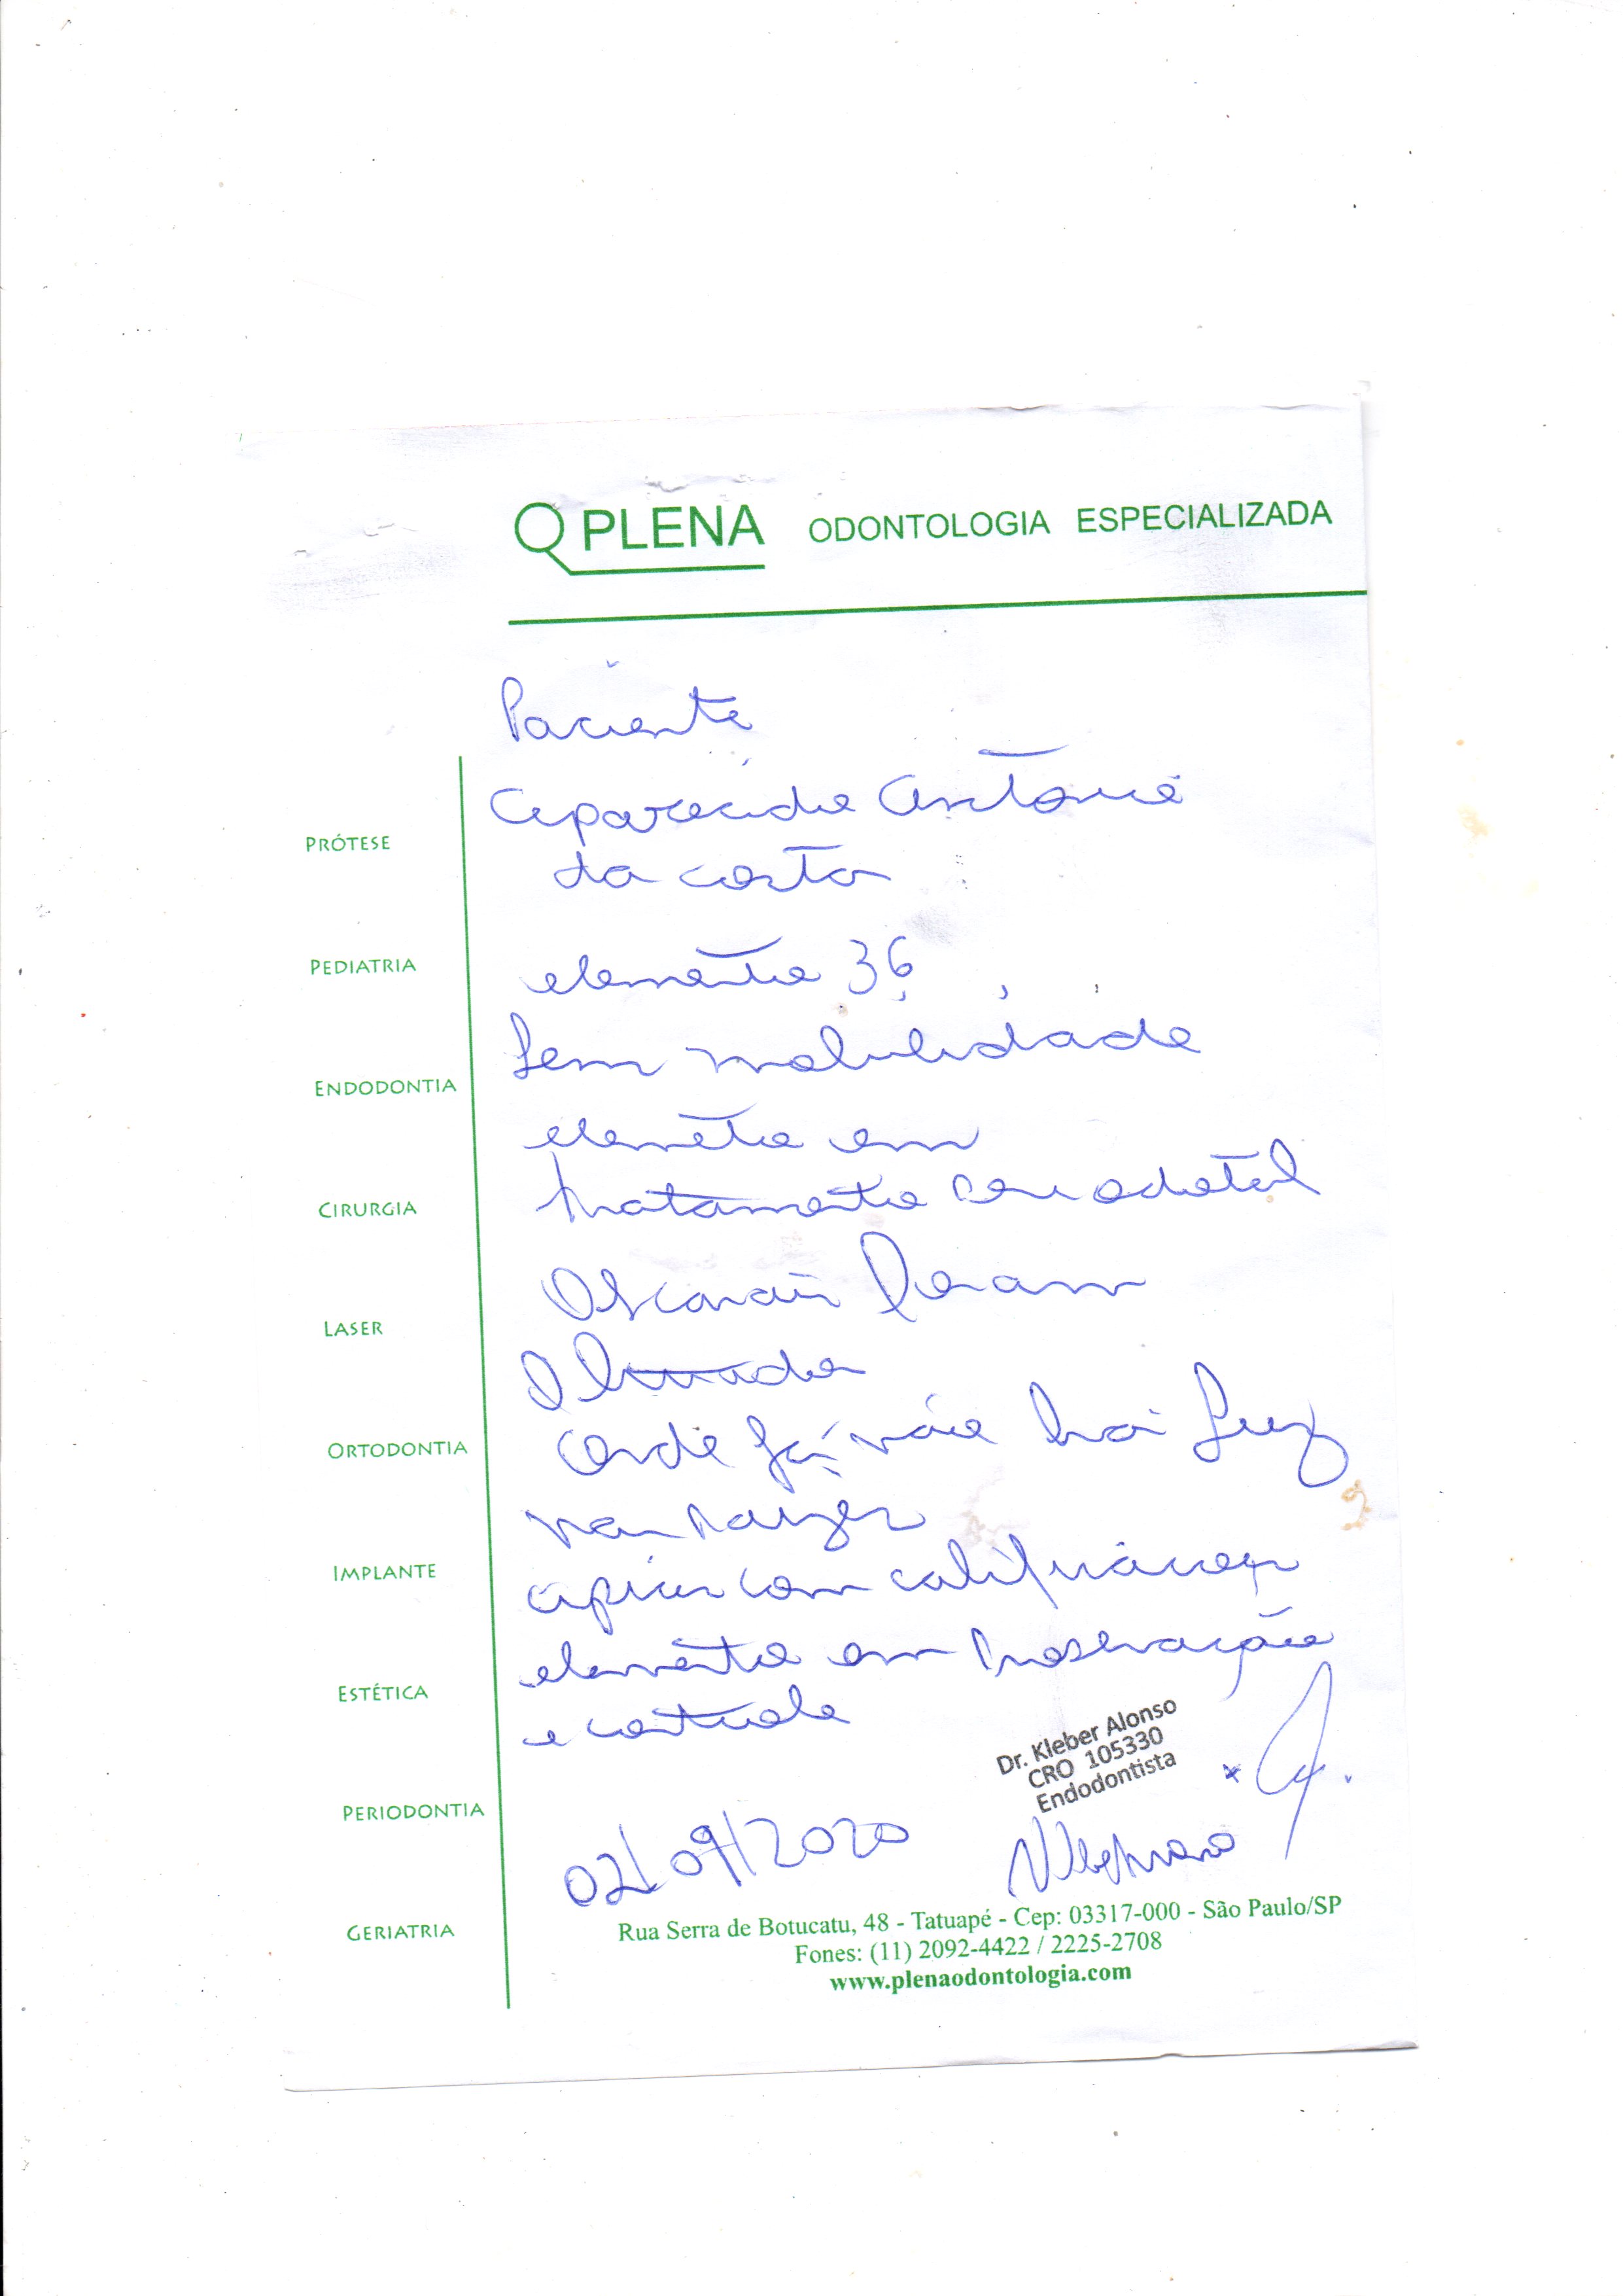 PLENA ODONTOLOGIA ESPECIALIZADA
Paciente
Aparecida Antonia
da costa
elemento 36
Sem mobilidade
elemento em
tratamento
Obturados
onde já não há luz
nas raizes
apices com
elemento em proservação
e controle
Dr. Kleber Alonso
CRO 105330
Endodontista
02/09/2020
PRÓTESE
PEDIATRIA
ENDODONTIA
CIRURGIA
LASER
ORTODONTIA
IMPLANTE
ESTÉTICA
PERIODONTIA
GERIATRIA
Rua Serra de Botucatu, 48 - Tatuapé - Cep: 03317-000 - São Paulo/SP
Fones: (11) 2092-4422 / 2225-2708
www.plenaodontologia.com